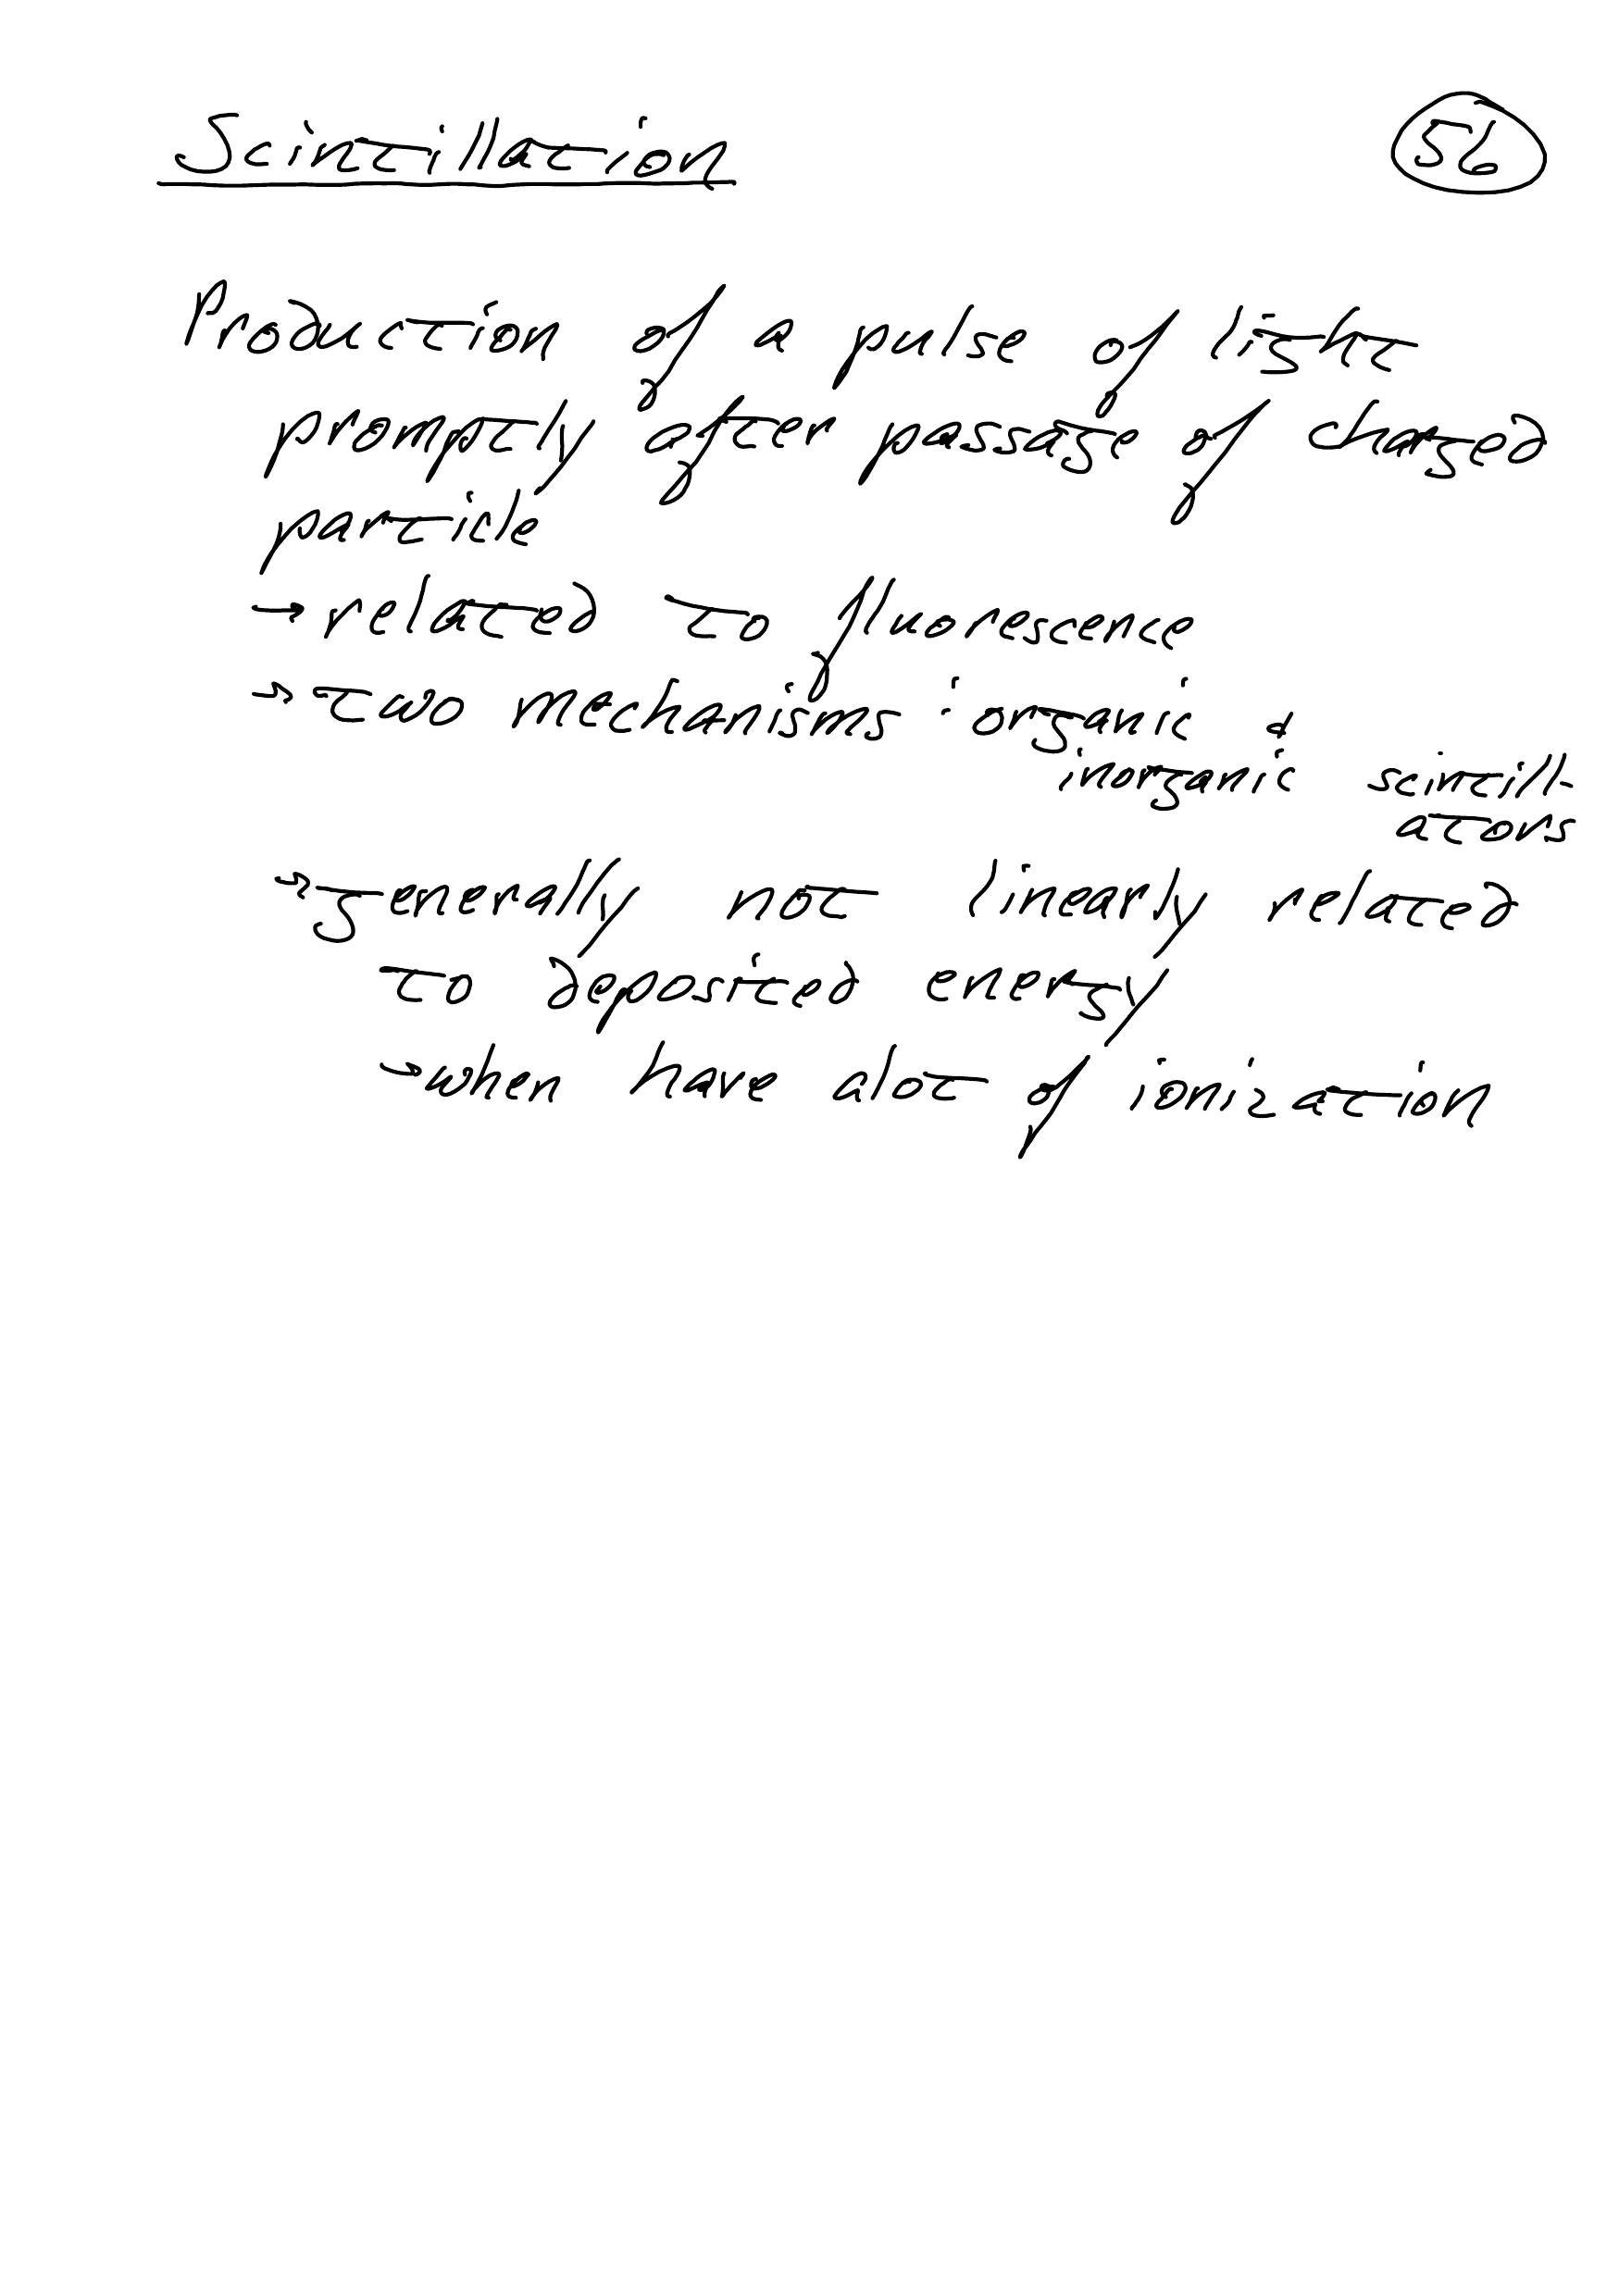 Scintillation
56
Production of a pulse of light
promptly after passage of charged
particle
→ related to fluorescence
→ two mechanisms : organic &
inorganic scintill-
ators
→ generally not linearly related
to deposited energy
→ when have alot of ionization